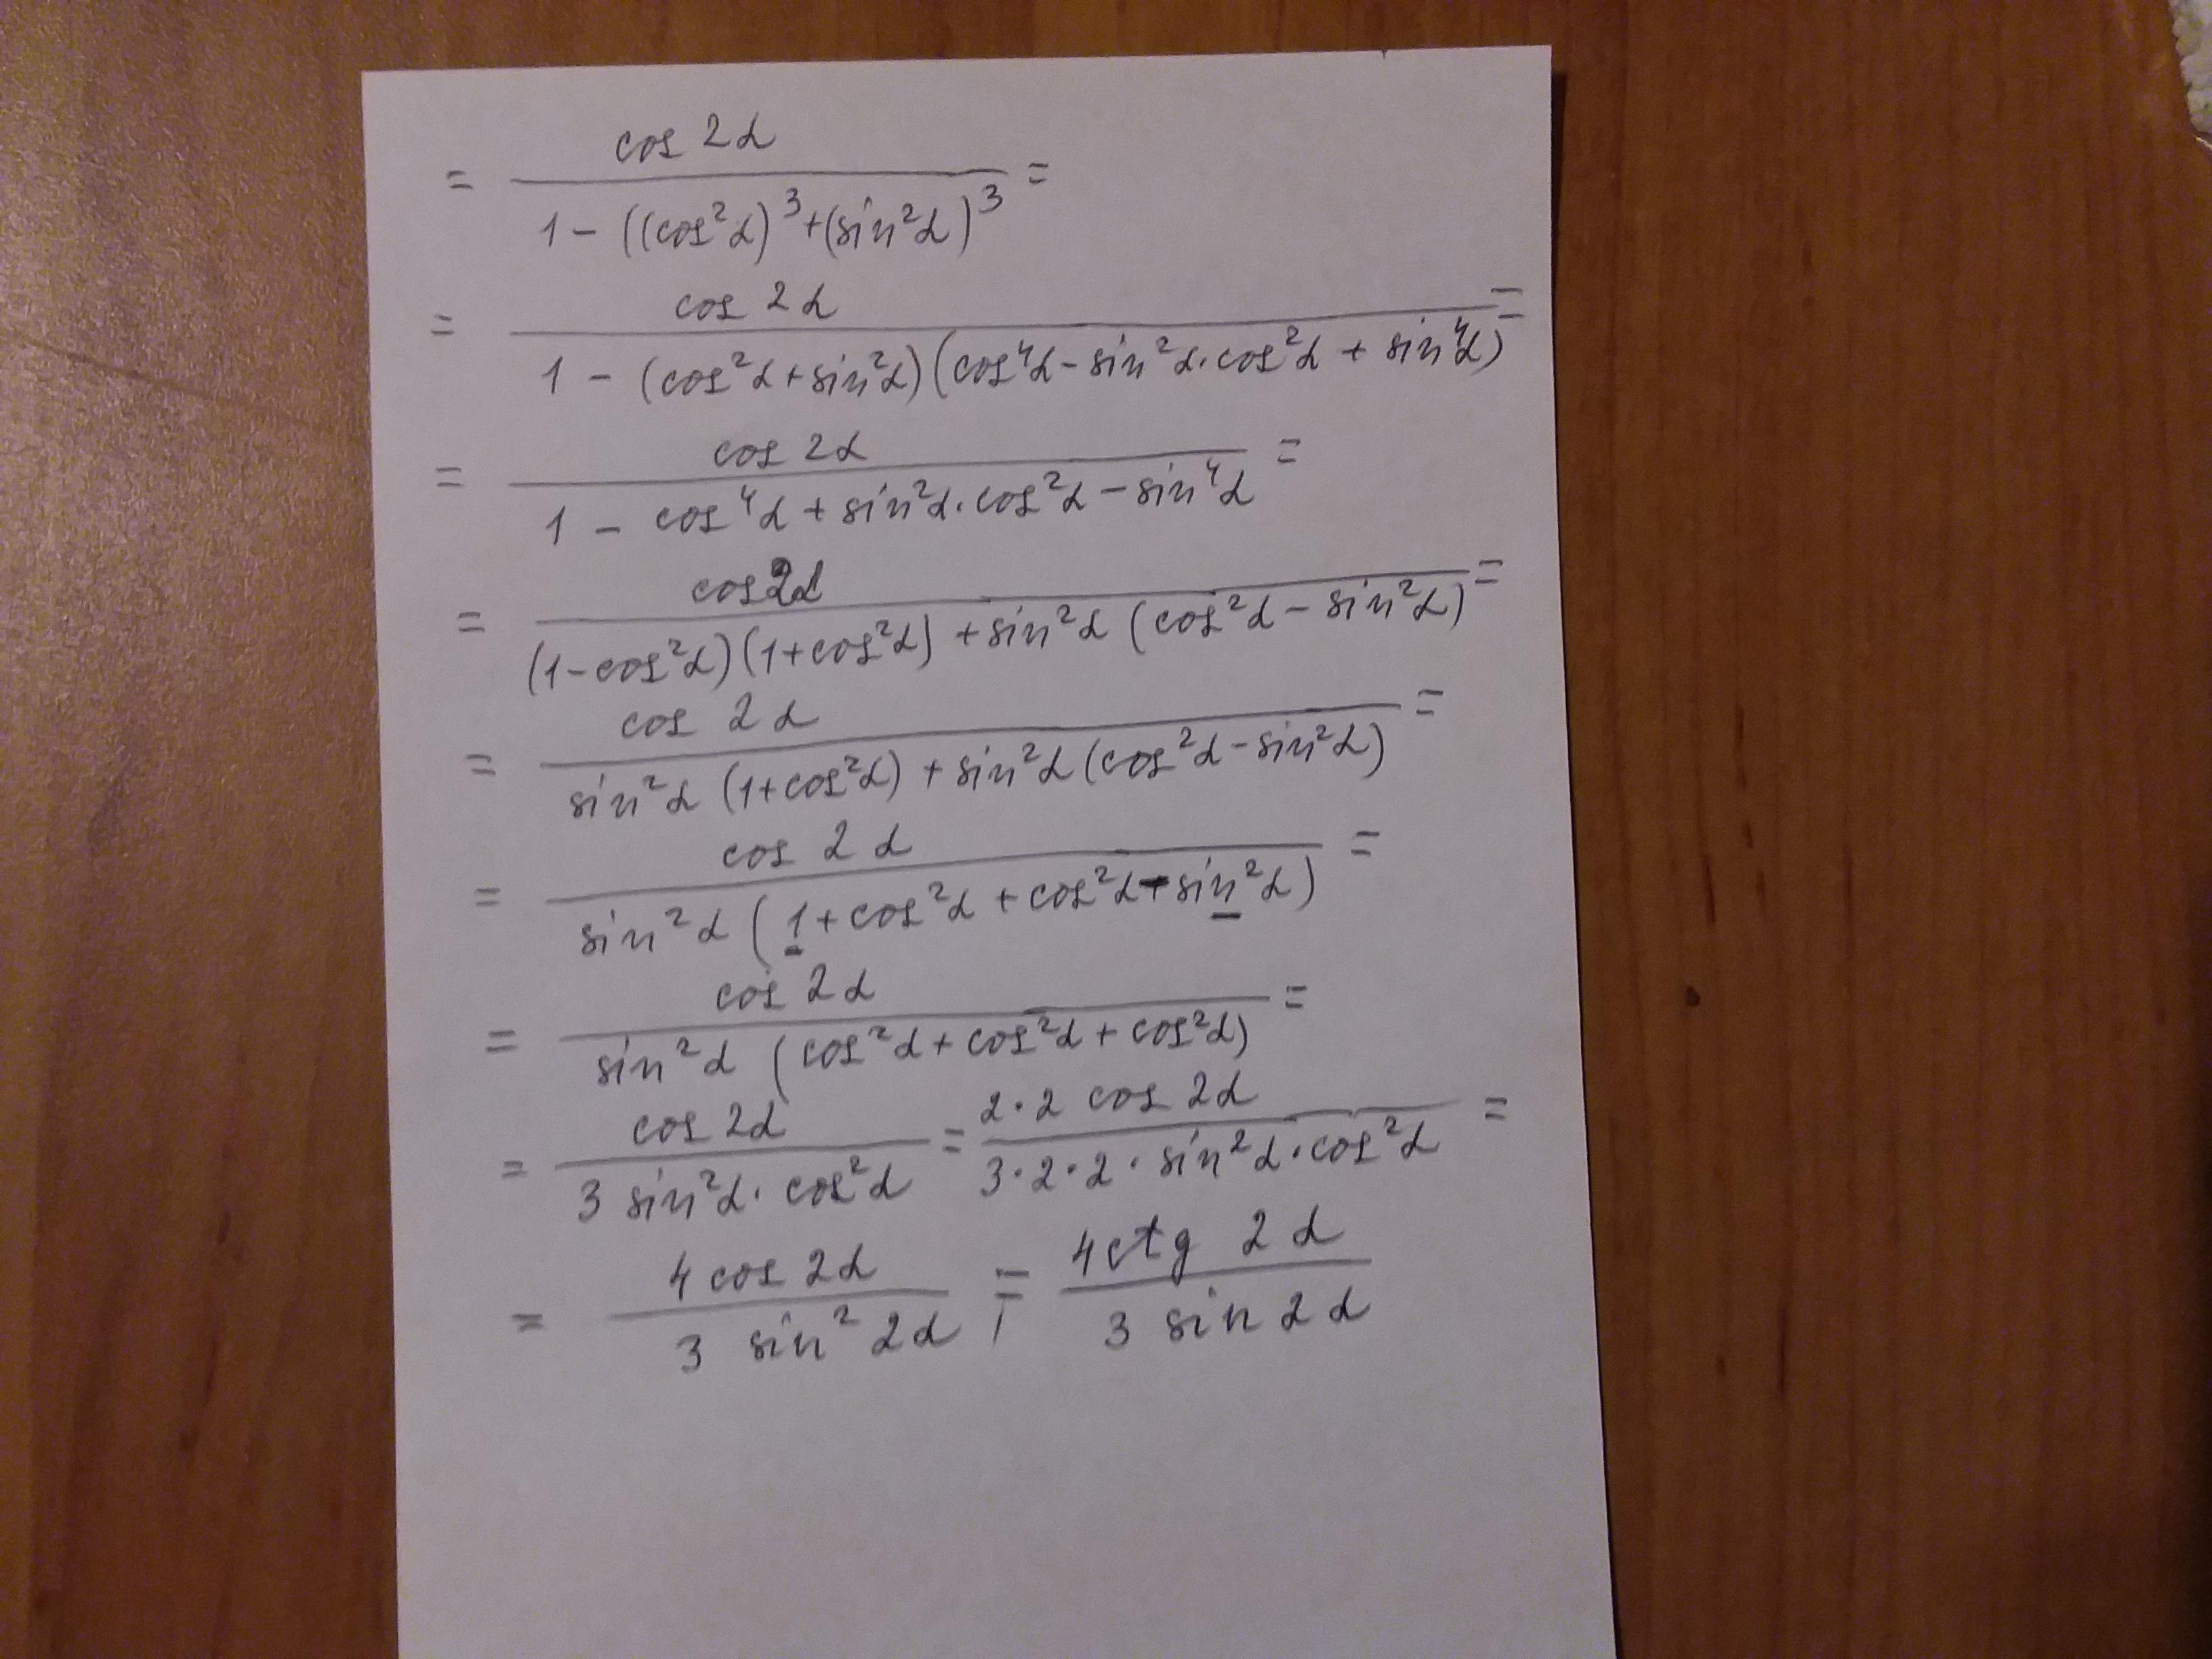 = cos 2α / 1 - ((cos²α)³+(sin²α)³ =
= cos 2α / 1 - (cos²α+sin²α)(cos⁴α-sin²α·cos²α + sin⁴α) =
= cos 2α / 1 - cos⁴α + sin²α·cos²α - sin⁴α =
= cos2α / (1-cos²α)(1+cos²α) + sin²α (cos²α - sin²α) =
= cos 2α / sin²α (1+cos²α) + sin²α (cos²α - sin²α) =
= cos 2α / sin²α (1+cos²α + cos²α - sin²α) =
= cos 2α / sin²α (cos²α + cos²α + cos²α) =
= cos 2α / 3 sin²α · cos²α = 2·2 cos 2α / 3·2·2 · sin²α · cos²α =
= 4 cos 2α / 3 sin² 2α = 4 ctg 2α / 3 sin 2α